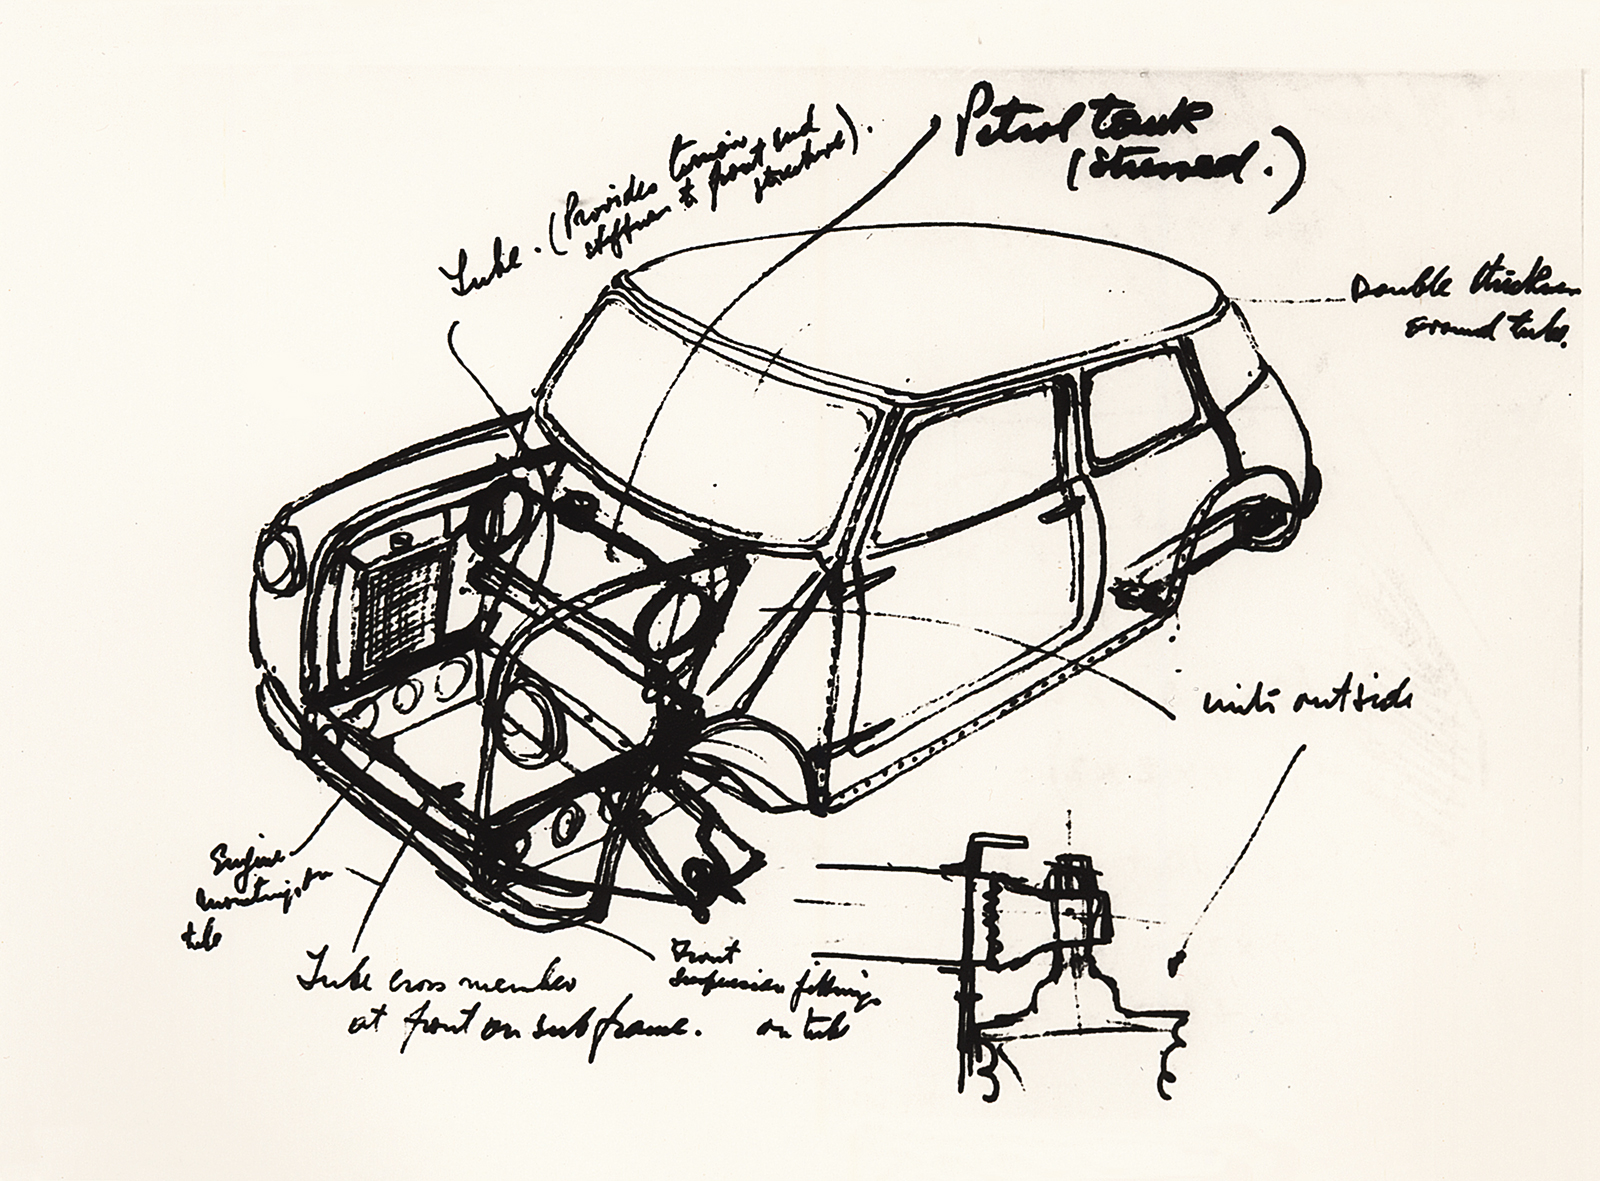 Petrol tank
(stressed.)
Tube. (Provides torsion and
stiffness to front
structure).
Double thickness
around tube.
units outside
Engine
mounting on
tube
Tube cross member
at front on subframe.
Front
suspension fittings
on tube